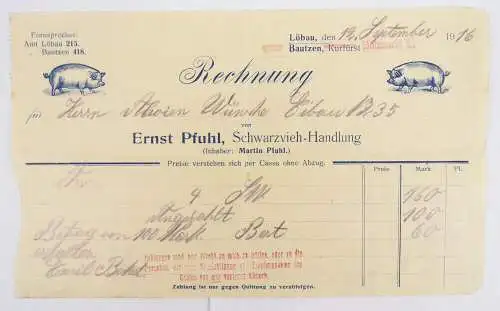 Fernsprecher:
Amt Löbau 215.
" Bautzen 418.
Löbau, den 12. September 1916
Bautzen, Kurfürst
Rechnung
für Herrn Alwin Wünsche Eibau 1235
von
Ernst Pfuhl, Schwarzvieh-Handlung
(Inhaber: Martin Pfuhl.)
Preise verstehen sich per Cassa ohne Abzug.
Preis Mark Pf.
4 160
Angezahlt 100
Betrag von 100 Mark Rest 60
erhalten
Emil
Zahlungen sind nur direkt an mich zu leisten, oder an die
Zahlung ist nur gegen Quittung zu verabfolgen.